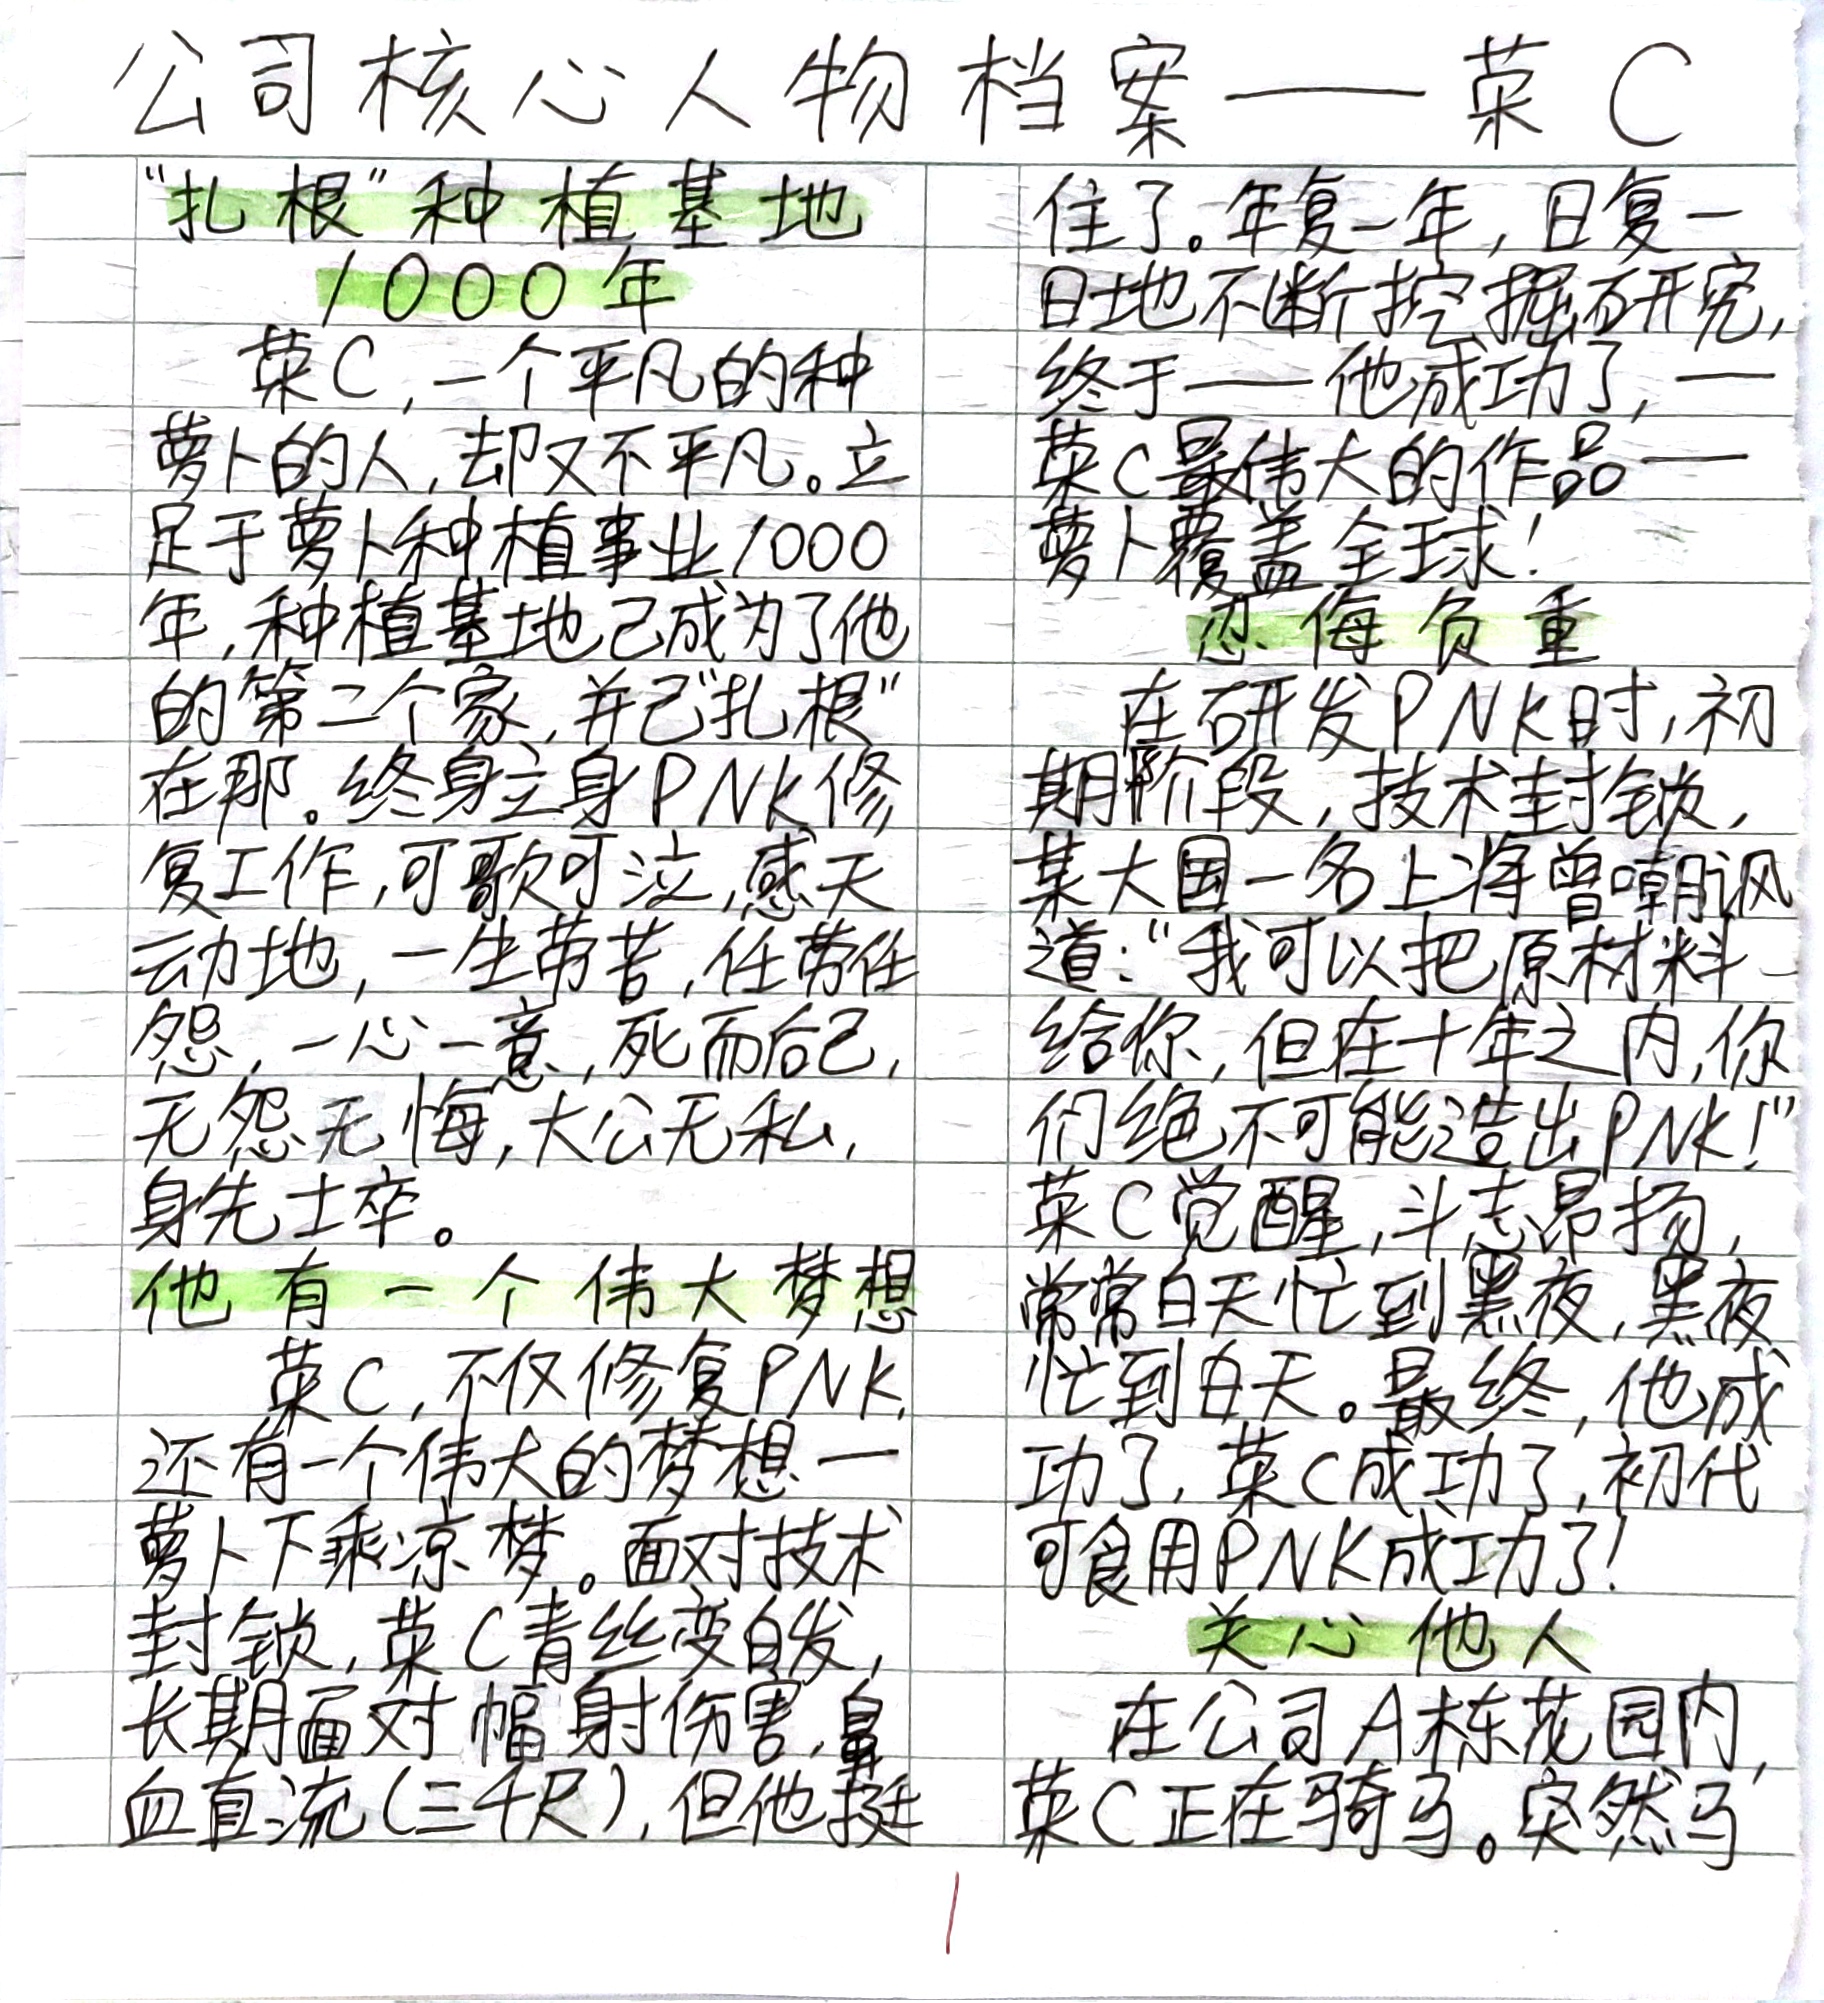 公司核心人物档案——菜C
“扎根”种植基地
1000年
菜C,一个平凡的种
萝卜的人,却又不平凡。立
足于萝卜种植事业1000
年,种植基地已成为了他
的第二个家,并已“扎根”
在那。终身立身PNK修
复工作,可歌可泣,感天
动地,一生劳苦,任劳任
怨,一心一意,死而后已,
无怨无悔,大公无私,
身先士卒。
他有一个伟大梦想
菜C,不仅修复PNK,
还有一个伟大的梦想一
萝卜下乘凉梦。面对技术
封锁,菜C青丝变白发,
长期面对幅射伤害,鼻
血直流(三千尺),但他挺
住了。年复一年,日复一
日地不断挖掘研究,
终于——他成功了,—
菜C最伟大的作品—
萝卜覆盖全球!
忍侮负重
在研发PNK时,初
期阶段,技术封锁,
某大国一名上将曾嘲讽
道:“我可以把原材料
给你,但在十年之内,你
们绝不可能造出PNK!”
菜C觉醒,斗志昂扬,
常常白天忙到黑夜,黑夜
忙到白天。最终,他成
功了,菜C成功了,初代
可食用PNK成功了!
关心他人
在公司A栋花园内,
菜C正在骑马。突然马
1